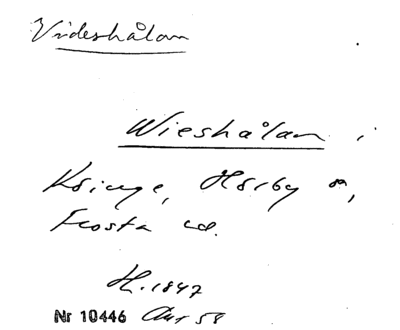 Videshålan
Wieshålan i
Köinge, Hörby sn,
Frosta hd.
H. 1847
Nr 10446 58